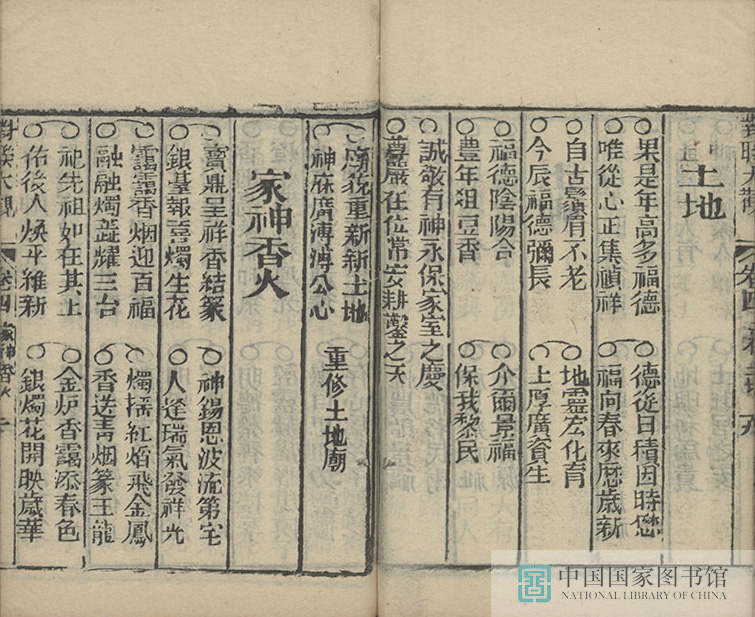 土地
果是年高多福德
德從日積因時懋
唯從心正集禎祥
福向春來歷歲新
自古鬚眉不老
地靈宏化育
今辰福德彌長
上厚廣資生
福德陰陽合
介爾景福
豐年俎豆香
保我黎民
誠敬有神永保家室之慶
尊嚴在位常安耕鑿之天
廟貌重新新土地
神庥廣溥溥公心
重修土地廟
家神香火
寶鼎呈祥香結篆
神錫恩波流第宅
銀臺報喜燭生花
人逢瑞氣發祥光
靄靄香烟迎百福
燭搖紅焰飛金鳳
融融燭蕋耀三台
香送青烟篆玉龍
祀先祖如在其上
金炉香靄添春色
佑後人煥乎維新
銀燭花開映歲華
卷四
家神香火
中国国家图书馆
NATIONAL LIBRARY OF CHINA